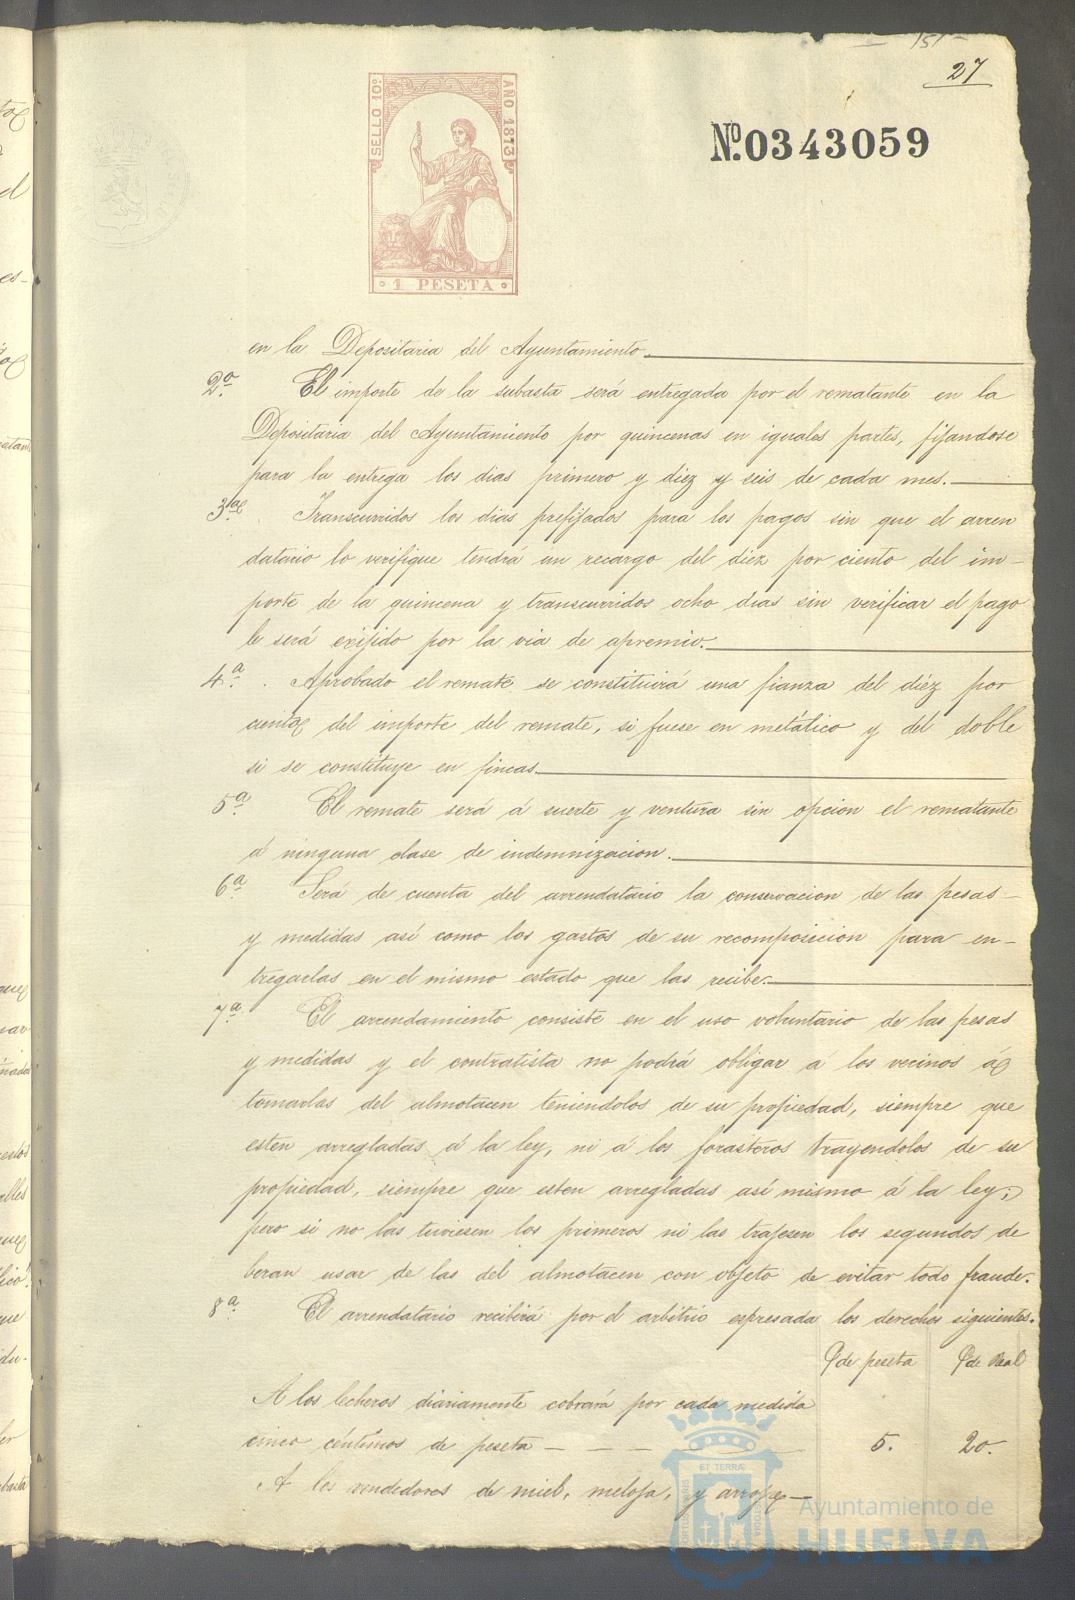 151
27
SELLO 10º
AÑO 1873
1 PESETA
Nº.0343059
en la Depositaria del Ayuntamiento.
2ª. El importe de la subasta será entregada por el rematante en la
Depositaria del Ayuntamiento por quincenas en iguales partes, fijandose
para la entrega los dias primero y diez y seis de cada mes.
3ª. Transcurridos los dias prefijados para los pagos sin que el arren
datario lo verifique tendrá un recargo del diez por ciento del im-
porte de la quincena y transcurridos ocho dias sin verificar el pago
le será exijido por la via de apremio.
4ª. Aprobado el remate se constituirá una fianza del diez por
ciento del importe del remate, si fuese en metálico y del doble
si se constituye en fincas.
5ª. El remate será á suerte y ventura sin opcion el rematante
á ninguna clase de indemnizacion.
6ª. Será de cuenta del arrendatario la conservacion de las pesas-
y medidas así como los gastos de su recomposicion para en-
tregarlas en el mismo estado que las recibe.
7ª. El arrendamiento consiste en el uso voluntario de las pesas
y medidas y el contratista no podrá obligar á los vecinos á
tomarlas del almotacen teniendolos de su propiedad, siempre que
esten arregladas á la ley, ni á los forasteros trayendolos de su
propiedad, siempre que esten arregladas así mismo á la ley;
pero si no las tuviesen los primeros ni las trajesen los segundos de
beran usar de las del almotacen con objeto de evitar todo fraude.
8ª. El arrendatario recibirá por el arbitrio espresada los derechos siguientes.
de peseta de Real
A los lecheros diariamente cobrará por cada medida
cinco céntimos de peseta - - - 5. 20.
A los vendedores de miel, meloja, y arrope-
ET TERRÆ
Ayuntamiento de
HUELVA